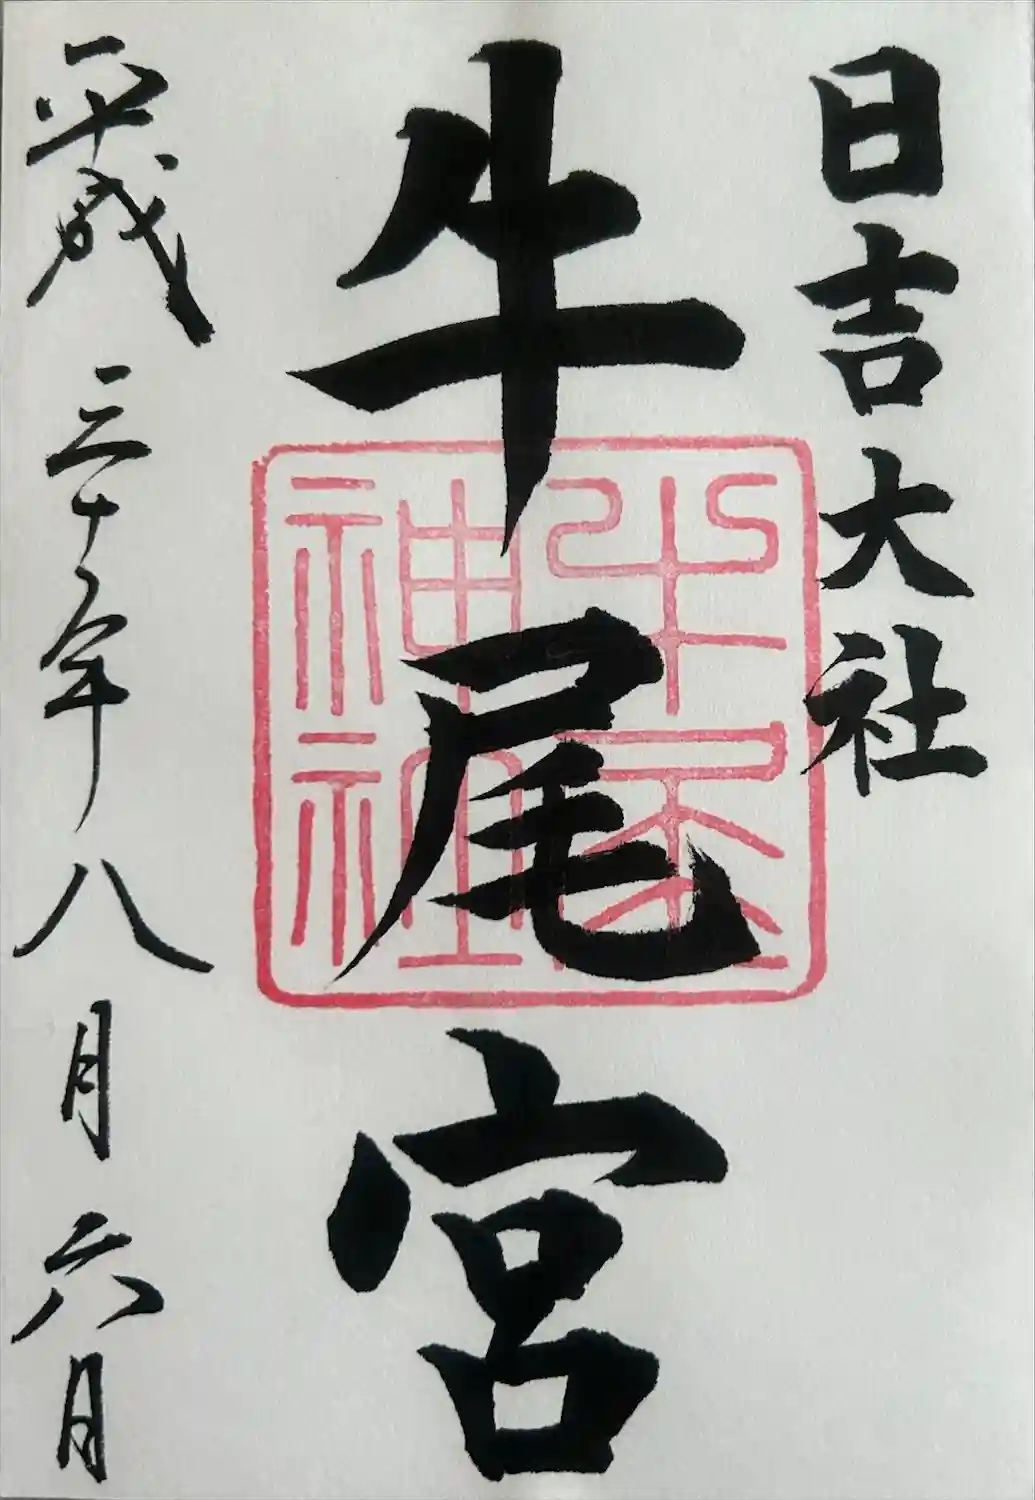 日吉大社
牛尾宮
牛尾
神社
平成三十年八月六日